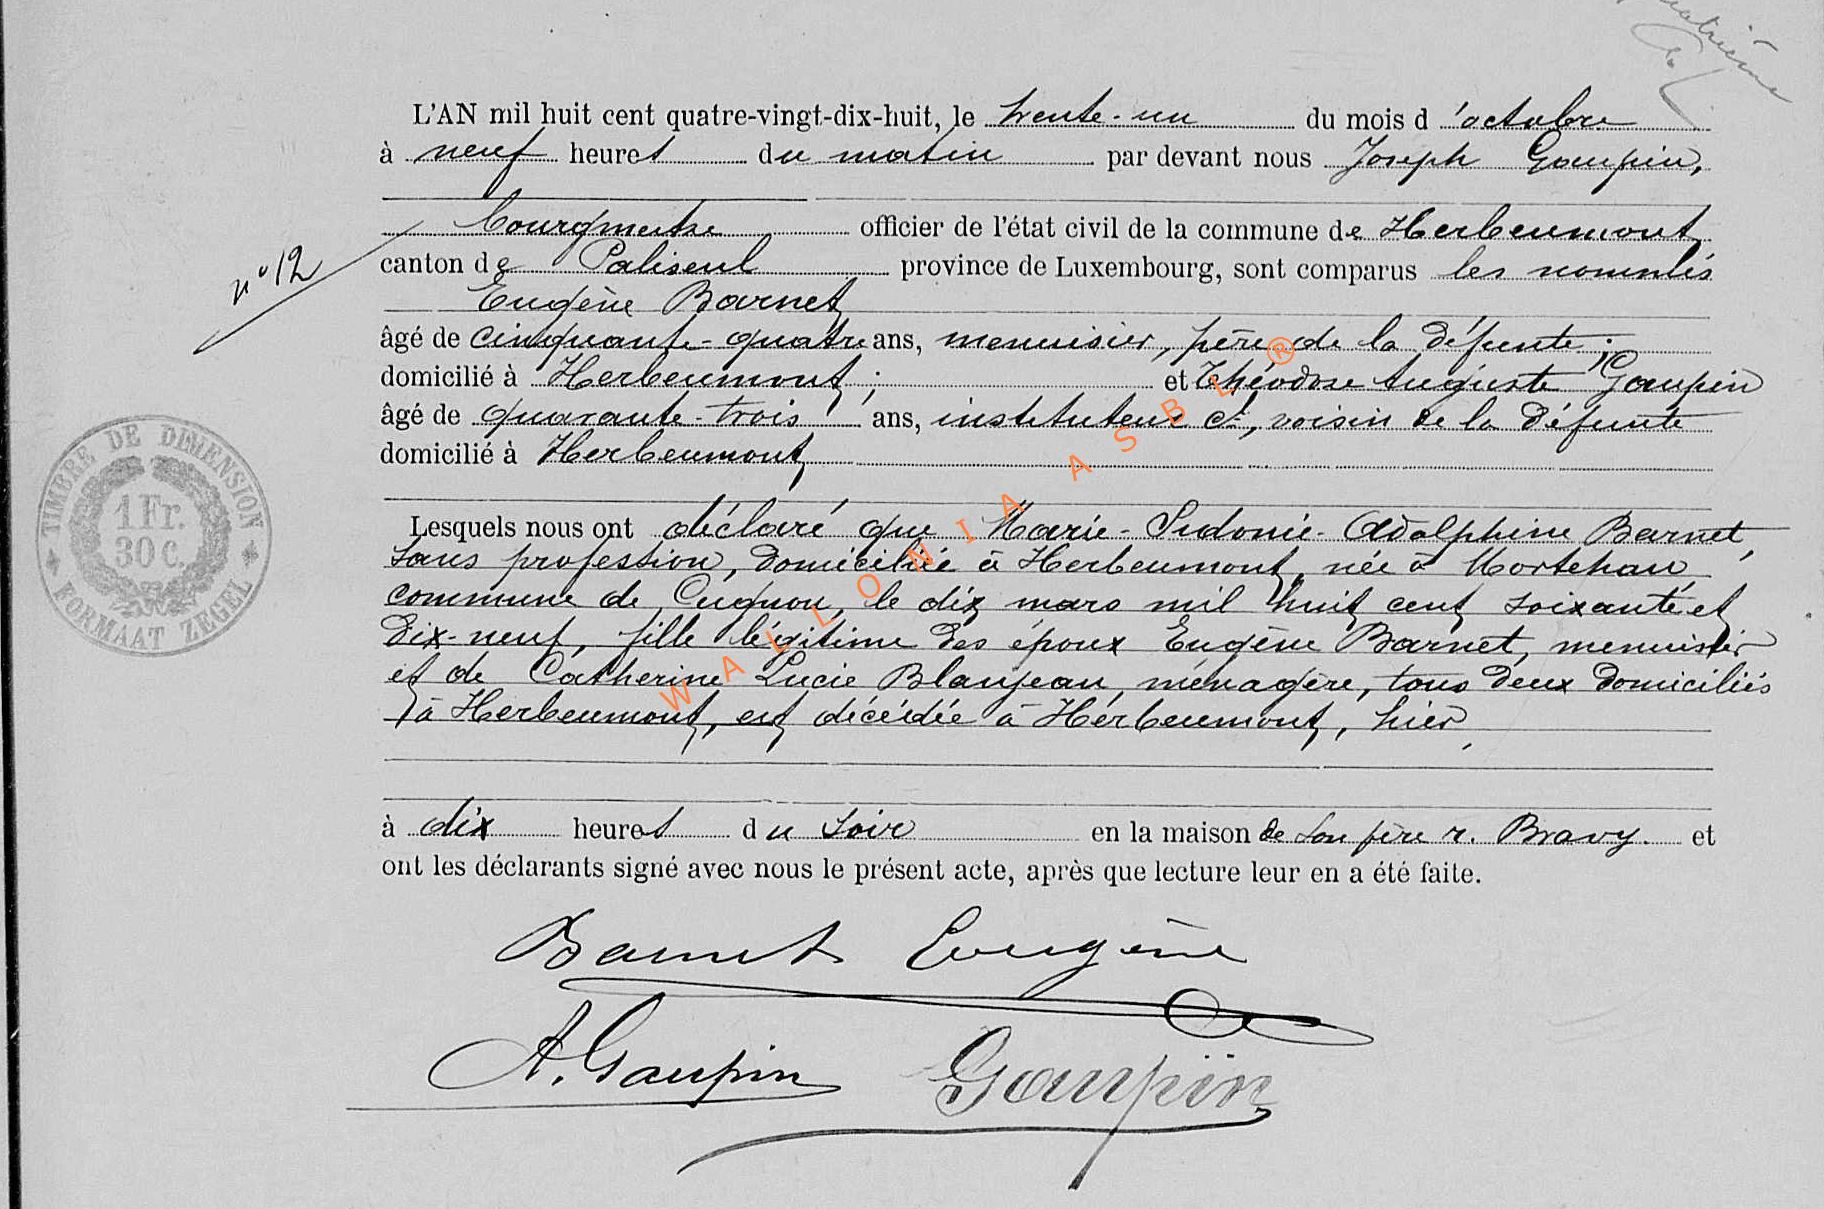 quatrième
L'AN mil huit cent quatre-vingt-dix-huit, le trente-un du mois d'octobre
à neuf heures du matin par devant nous Joseph Gaupin,
bourgmestre officier de l'état civil de la commune de Herbeumont
n° 12
canton de Paliseul province de Luxembourg, sont comparus les nommés
Eugène Barnet
âgé de cinquante-quatre ans, menuisier, père de la défunte
domicilié à Herbeumont; et Théodose Auguste Gaupin
âgé de quarante-trois ans, instituteur cl, voisin de la défunte
domicilié à Herbeumont
TIMBRE DE DIMENSION
1 Fr.
30 C.
FORMAAT ZEGEL
Lesquels nous ont déclaré que Marie-Sidonie-Adolphine Barnet,
sans profession, domiciliée à Herbeumont, née à Mortehan,
commune de Cugnon, le dix mars mil huit cent soixante et
dix-neuf, fille légitime des époux Eugène Barnet, menuisier
et de Catherine Lucie Blanjean, ménagère, tous deux domiciliés
à Herbeumont, est décédée à Herbeumont, hier,
à dix heures du soir en la maison de son père r. Bravy. et
ont les déclarants signé avec nous le présent acte, après que lecture leur en a été faite.
Barnet Eugène
A. Gaupin Gaupin
WALLONIA ASBL ®